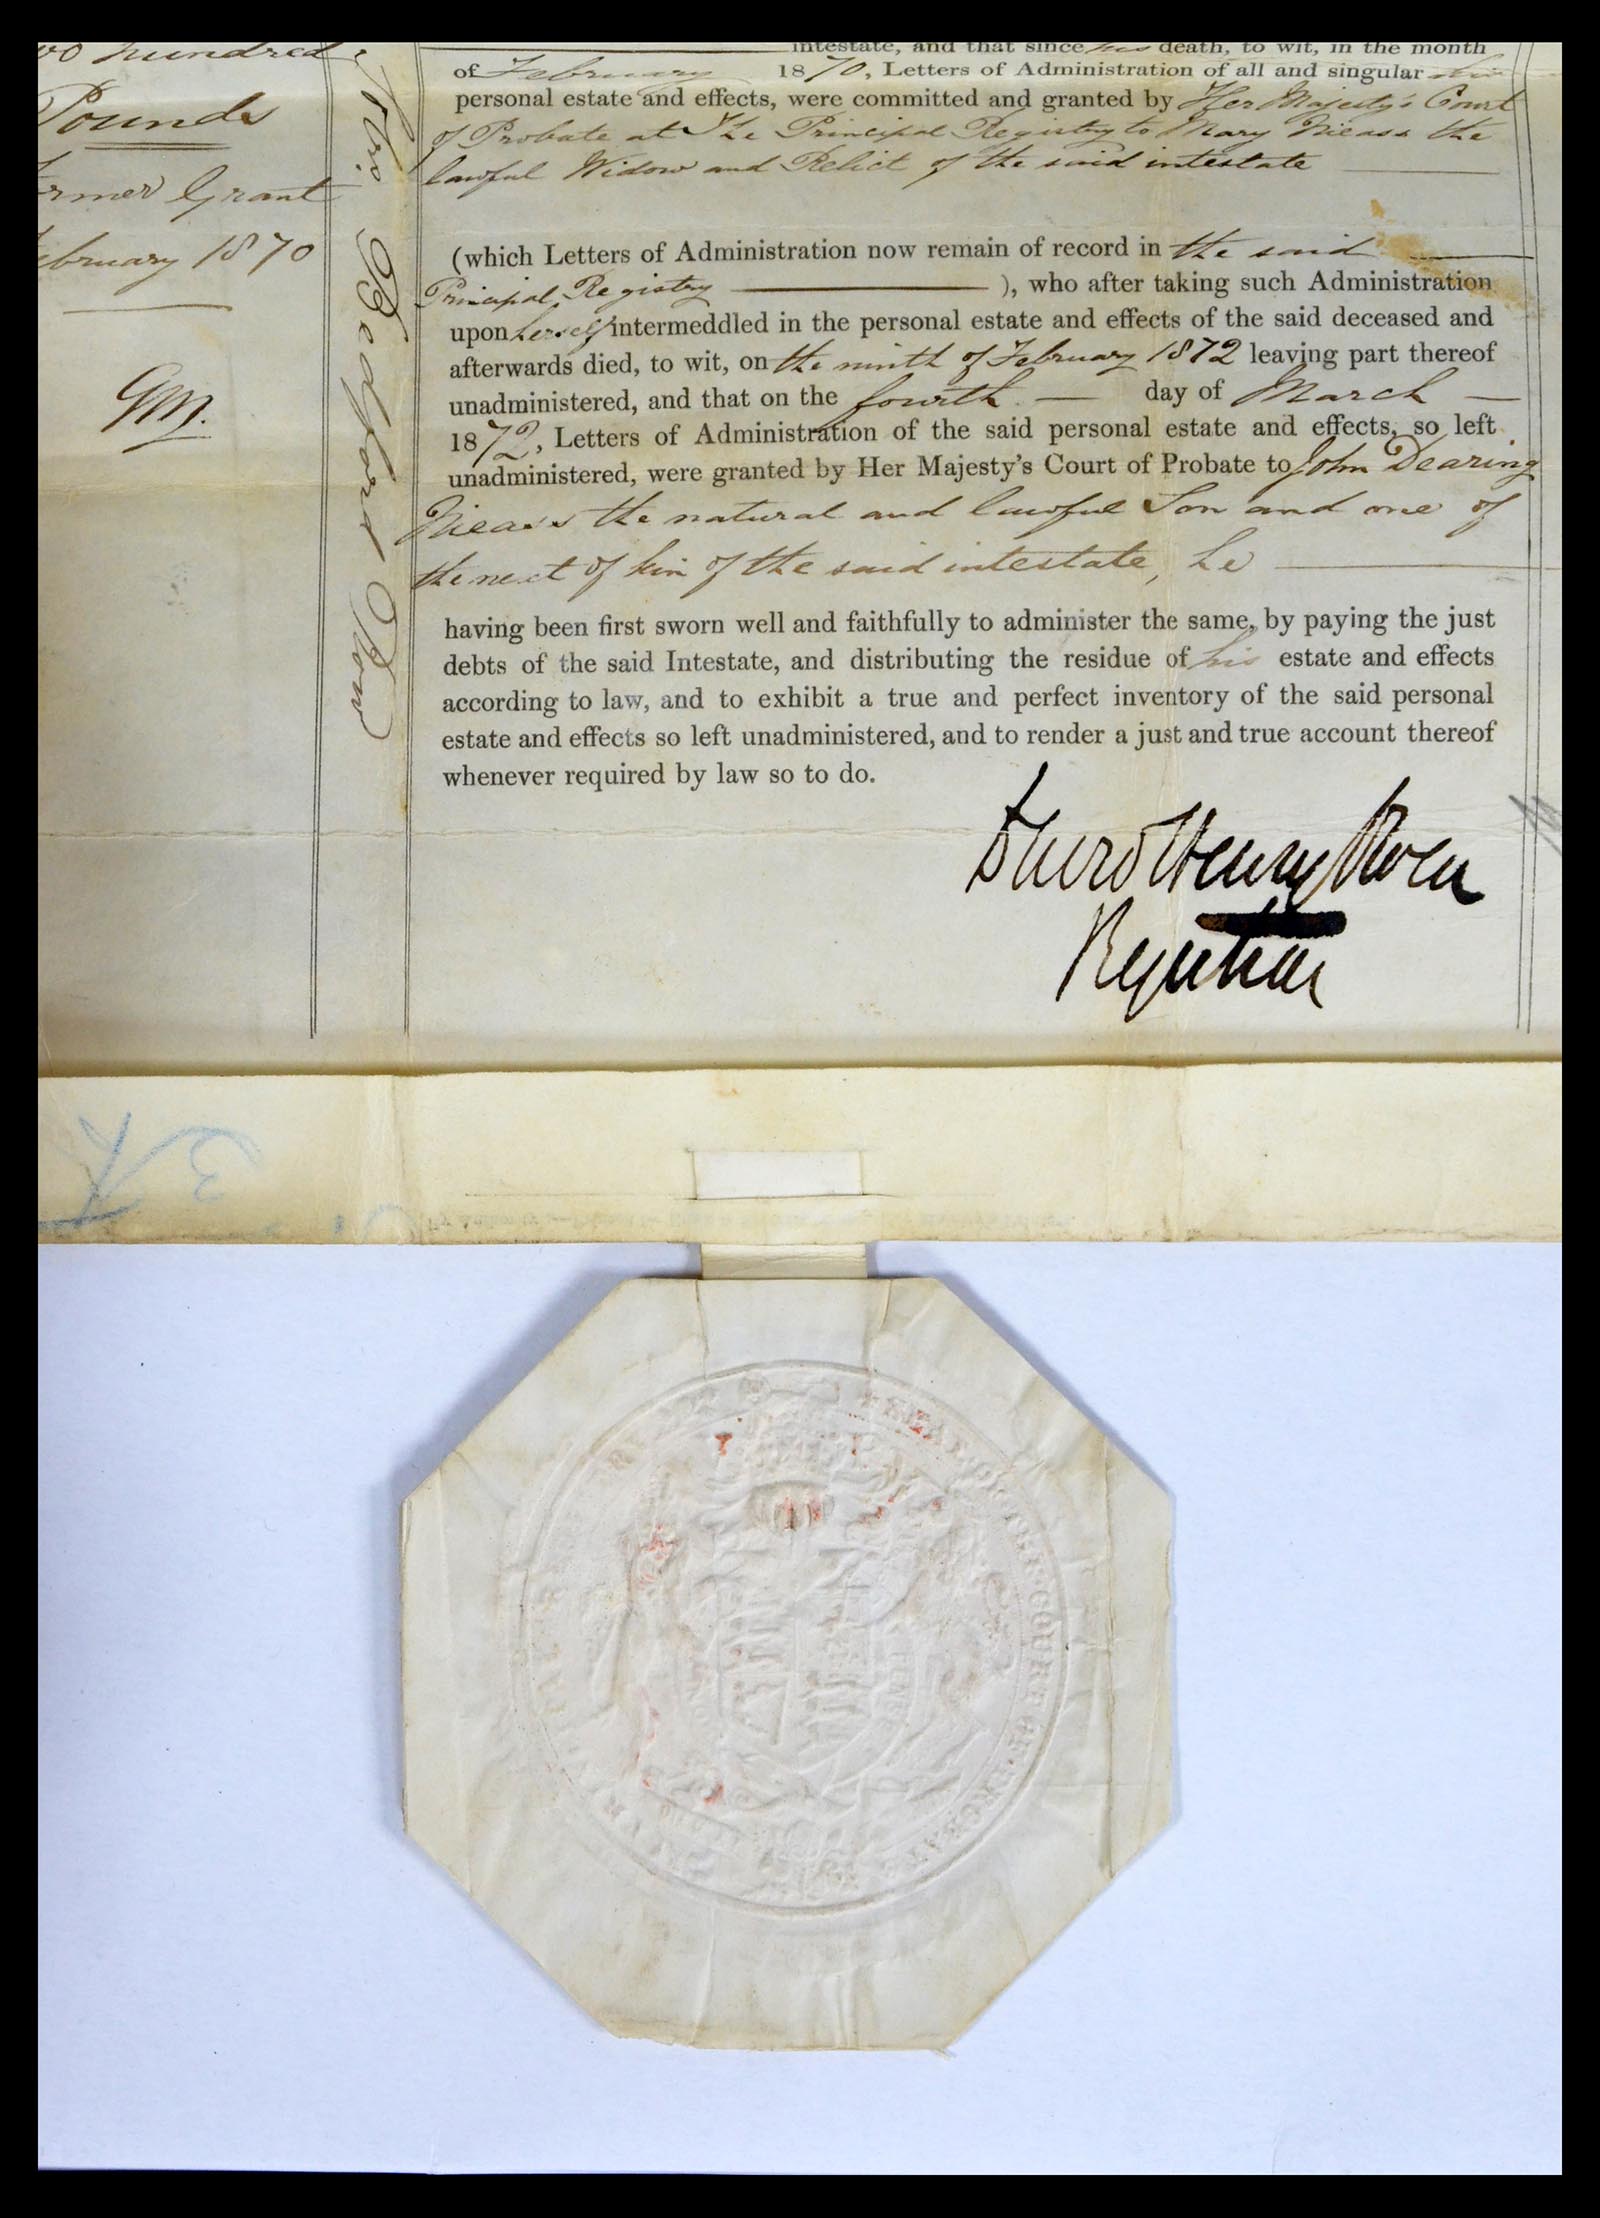 intestate, and that since his death, to wit, in the month
of February 1870, Letters of Administration of all and singular his
personal estate and effects, were committed and granted by Her Majesty's Court
of Probate at The Principal Registry to Mary Nieass the
lawful Widow and Relict of the said intestate
(which Letters of Administration now remain of record in the said
Principal Registry ), who after taking such Administration
upon herself intermeddled in the personal estate and effects of the said deceased and
afterwards died, to wit, on the ninth of February 1872 leaving part thereof
unadministered, and that on the fourth day of March
1872, Letters of Administration of the said personal estate and effects, so left
unadministered, were granted by Her Majesty's Court of Probate to John Dearing
Nieass the natural and lawful Son and one of
the next of kin of the said intestate, he
having been first sworn well and faithfully to administer the same, by paying the just
debts of the said Intestate, and distributing the residue of his estate and effects
according to law, and to exhibit a true and perfect inventory of the said personal
estate and effects so left unadministered, and to render a just and true account thereof
whenever required by law so to do.
Henry
Registrar
wo hundred
Pounds
ormer Grant
ebruary 1870
GM.
Bedford Row
3
COURT OF PROBATE